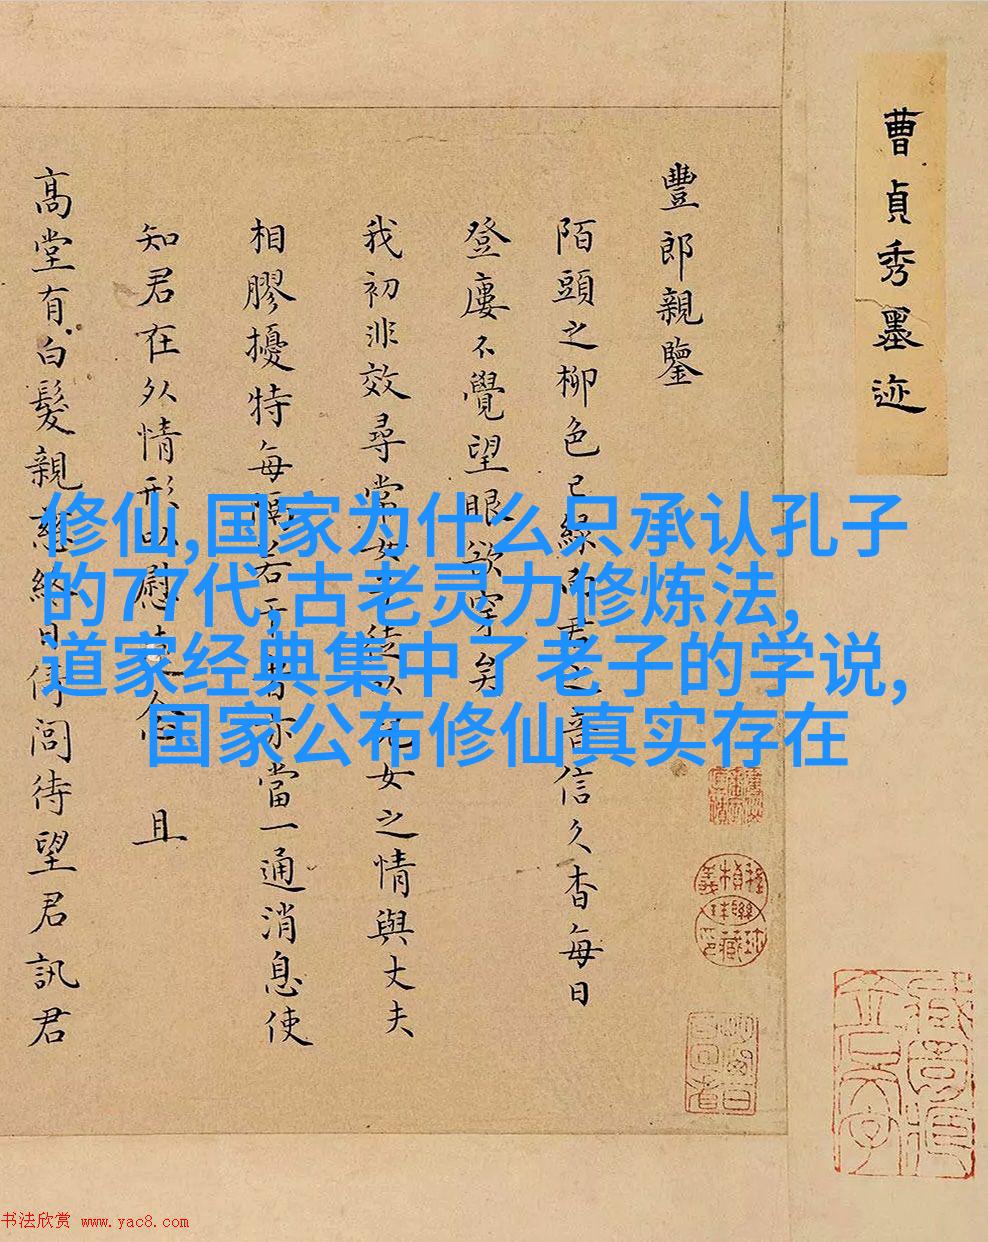 曹貞秀墨迹
豐郎親鑒
陌頭之柳色已綠而君之音信久杳每日
登廔不覺望眼欲穿矣
我初非效尋常女子徒以兒女之情與丈夫
相膠擾特每若干者亦當一通消息使
知君在外情形以慰心 且
高堂有白髮親終日倚閭待望君訊君
修仙,国家为什么只承认孔子
的77代,古老灵力修炼法,
道家经典集中了老子的学说,
国家公布修仙真实存在
书法欣赏 www.yac8.com